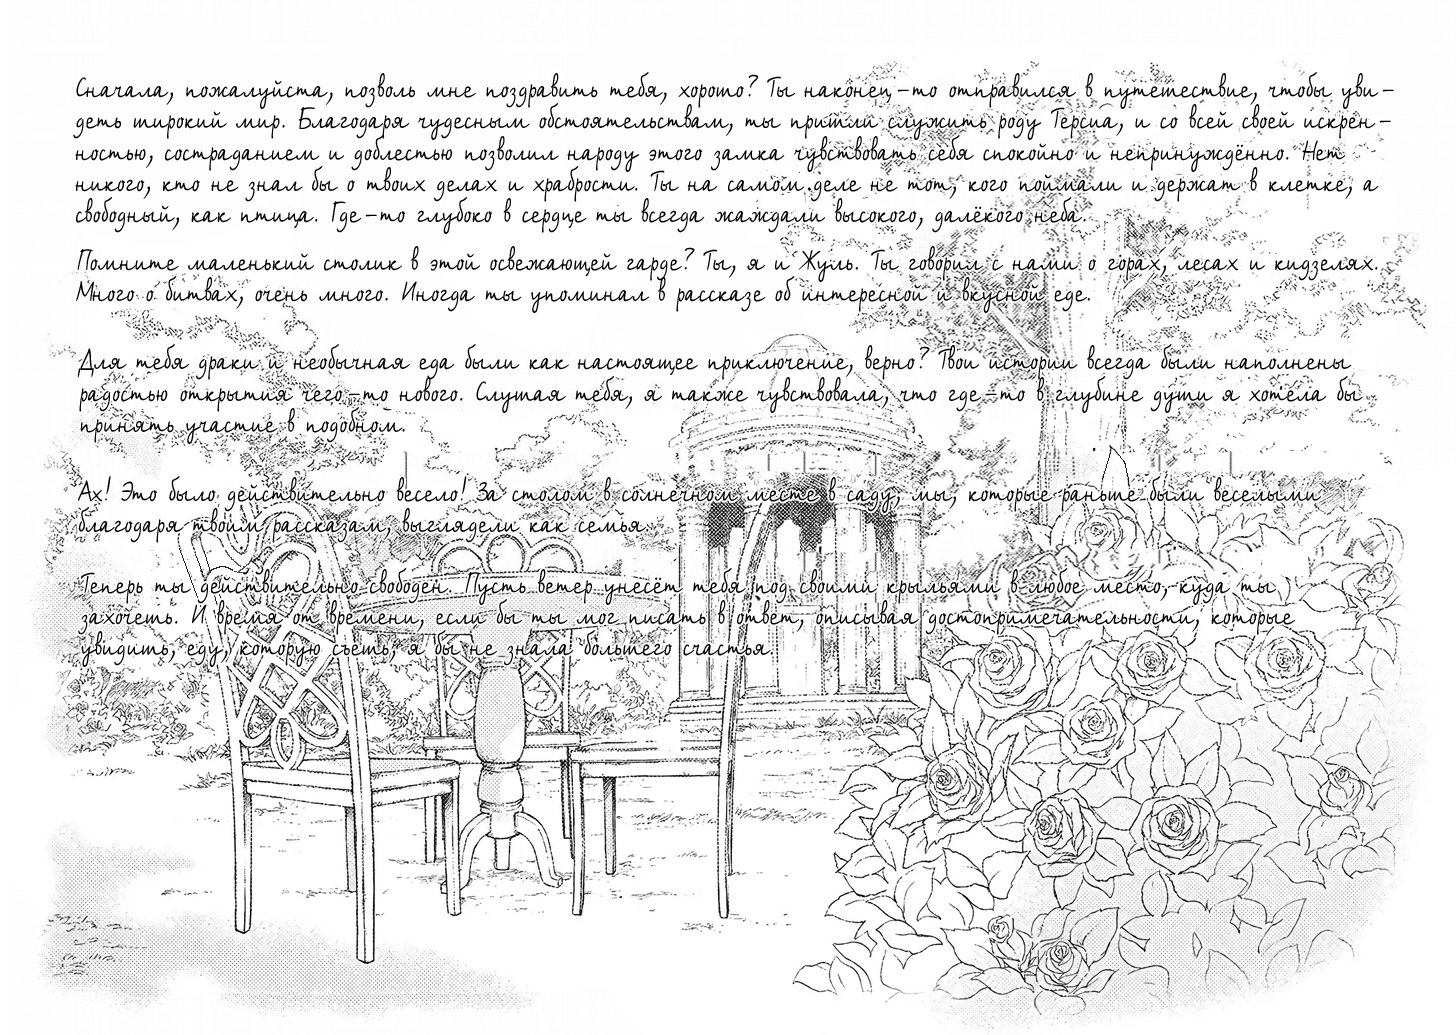 Сначала, пожалуйста, позволь мне поздравить тебя, хорошо? Ты наконец-то отправился в путешествие, чтобы уви-
деть широкий мир. Благодаря чудесным обстоятельствам, ты пришли служить роду Терсиа, и со всей своей искрен-
ностью, состраданием и доблестью позволил народу этого замка чувствовать себя спокойно и непринуждённо. Нет
никого, кто не знал бы о твоих делах и храбрости. Ты на самом деле не тот, кого поймали и держат в клетке, а
свободный, как птица. Где-то глубоко в сердце ты всегда жаждали высокого, далёкого неба.
Помните маленький столик в этой освежающей гарде? Ты, я и Жуль. Ты говорил с нами о горах, лесах и кидзелях.
Много о битвах, очень много. Иногда ты упоминал в рассказе об интересной и вкусной еде.
Для тебя драки и необычная еда были как настоящее приключение, верно? Твои истории всегда были наполнены
радостью открытия чего-то нового. Слушая тебя, я также чувствовала, что где-то в глубине души я хотела бы
принять участие в подобном.
Ах! Это было действительно весело! За столом в солнечном месте в саду, мы, которые раньше были веселыми
благодаря твоим рассказам, выглядели как семья.
Теперь ты действительно свободен. Пусть ветер унесёт тебя под своими крыльями в любое место, куда ты
захочешь. И время от времени, если бы ты мог писать в ответ, описывая достопримечательности, которые
увидишь, еду, которую съешь, я бы не знала большего счастья.